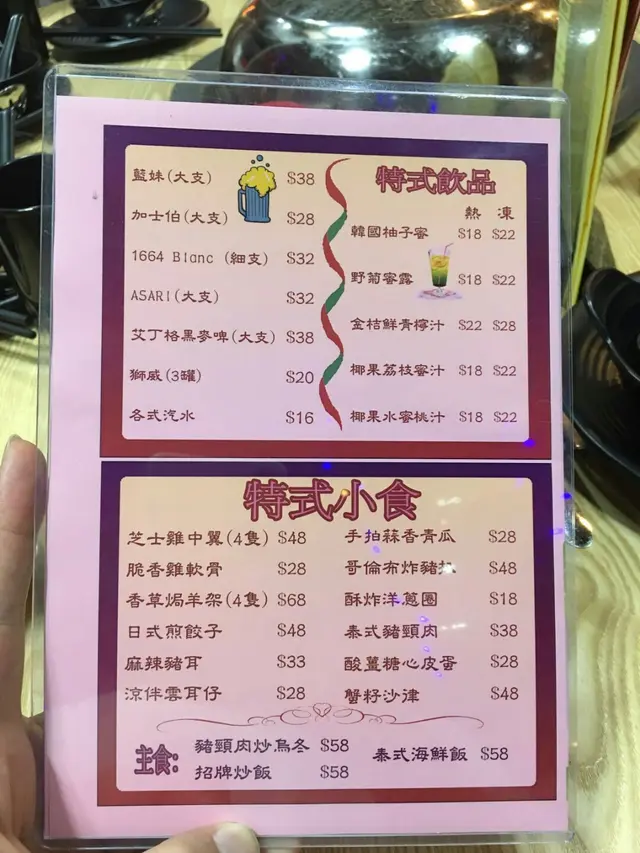 藍妹(大支) $38
加士伯(大支) $28
1664 Blanc (細支) $32
ASARI(大支) $32
艾丁格黑麥啤(大支) $38
獅威(3罐) $20
各式汽水 $16
特式飲品
熱 凍
韓國柚子蜜 $18 $22
野菊蜜露 $18 $22
金桔鮮青檸汁 $22 $28
椰果荔枝蜜汁 $18 $22
椰果水蜜桃汁 $18 $22
特式小食
芝士雞中翼(4隻) $48
脆香雞軟骨 $28
香草焗羊架(4隻) $68
日式煎餃子 $48
麻辣豬耳 $33
涼伴雲耳仔 $28
手拍蒜香青瓜 $28
哥倫布炸豬 $48
酥炸洋蔥圈 $18
泰式豬頸肉 $38
酸薑糖心皮蛋 $28
蟹籽沙律 $48
主食:
豬頸肉炒烏冬 $58
招牌炒飯 $58
泰式海鮮飯 $58